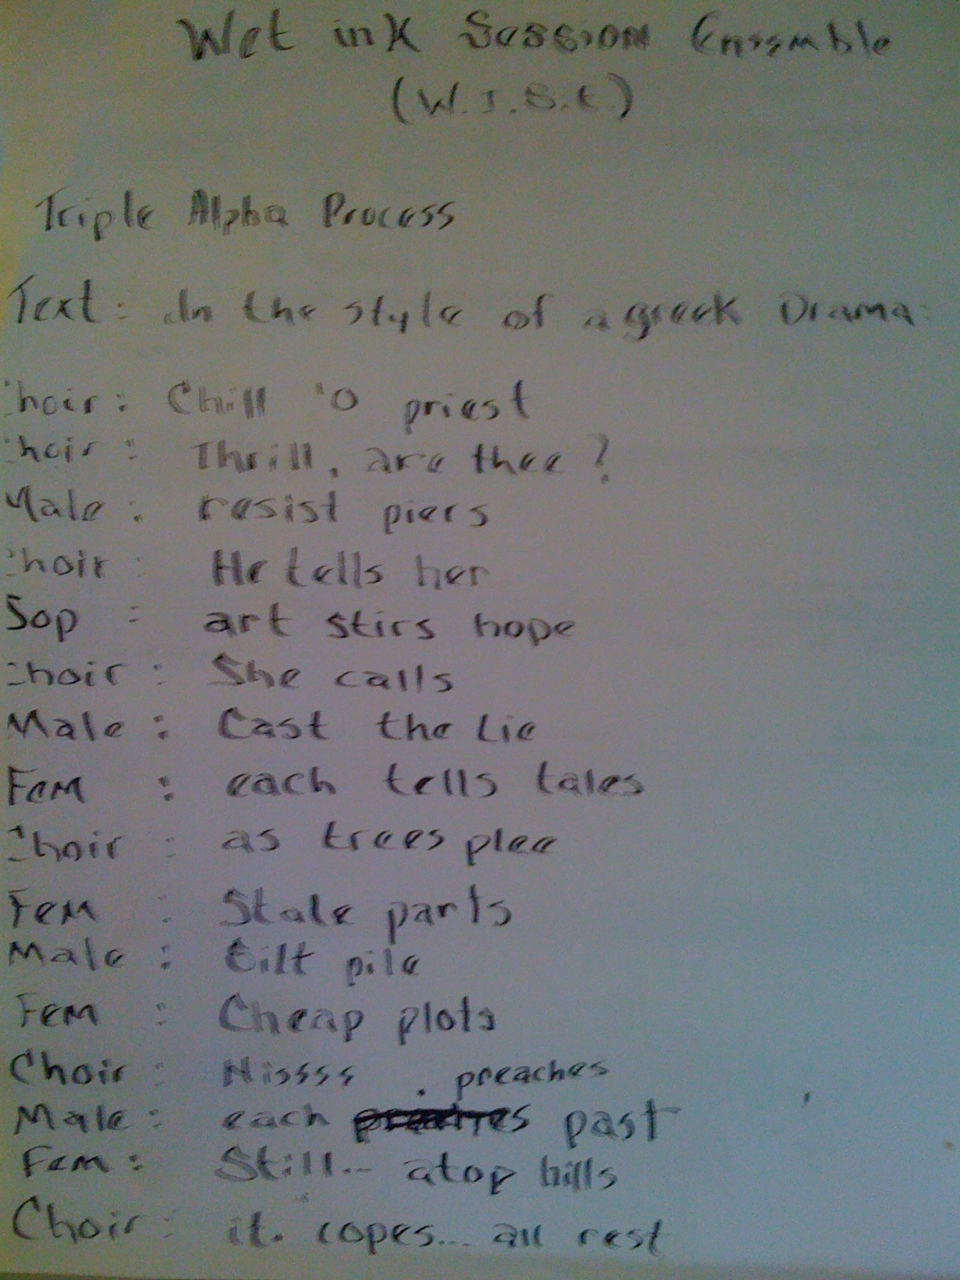 Wet ink Session Ensemble
(W.I.S.E.)
Triple Alpha Process
Text: In the style of a greek Drama:
Choir: Chill 'O priest
Choir: Thrill, are thee?
Male: resist piers
Choir: He tells her
Sop: art stirs hope
Choir: She calls
Male: Cast the Lie
Fem: each tells tales
Choir: as trees plee
Fem: Stale parts
Male: tilt pile
Fem: Cheap plots
Choir: Hissss . preaches
Male: each past
Fem: Still... atop hills
Choir: it. copes.... all rest